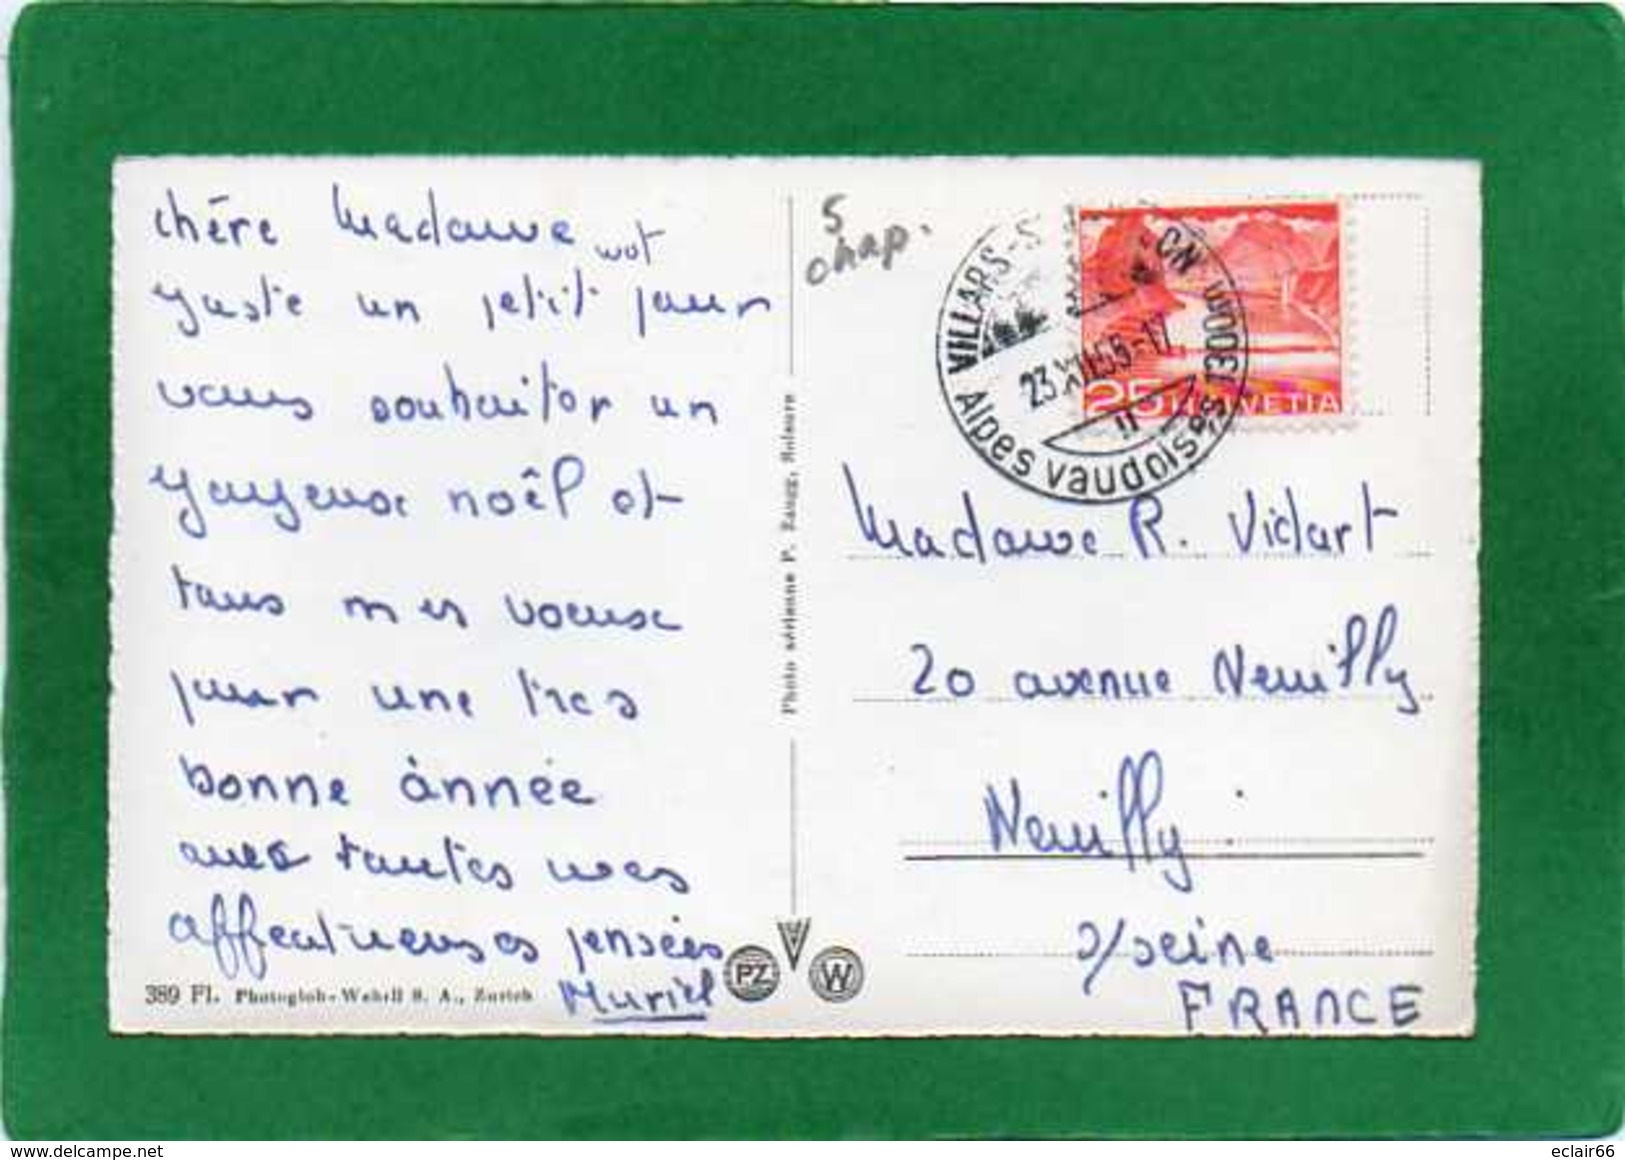 chére Madame
mot
Juste un petit pour
vous souhaiter un
Joyeux noêl et
tous mes voeux
pour une tres
bonne ànnée
avec toutes mes
affectueuses pensées
Muriel
389 Fl. Photoglob-Wehrli S. A., Zurich
Photo aérienne P. Zaugg, Soleure
PZ
W
5
chap.
VILLARS-S ON 1300m
23.XII.55-17
11
Alpes vaudoises
25 HELVETIA
Madame R. Vidart
20 avenue Neuilly
Neuilly
s/seine
FRANCE
eclair66